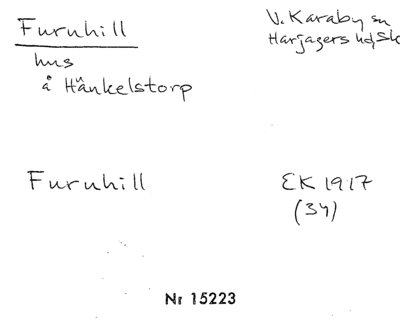 Furuhill
V. Karaby sn
Harjagers hd, Sk
hus
å Hänkelstorp
Furuhill
EK 1917
(34)
Nr 15223